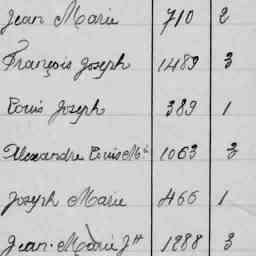 Jean Marie 710 2
François Joseph 1489 3
Louis Joseph 389 1
Alexandre Louis Mie 1063 3
Joseph Marie 466 1
Jean-Marie Jh 1288 3